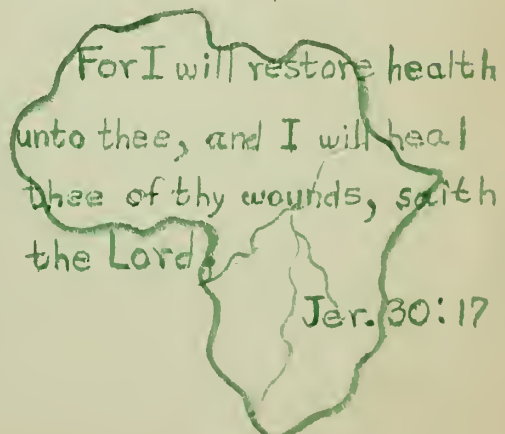 For I will restore health
unto thee, and I will heal
thee of thy wounds, saith
the Lord;
Jer. 30:17